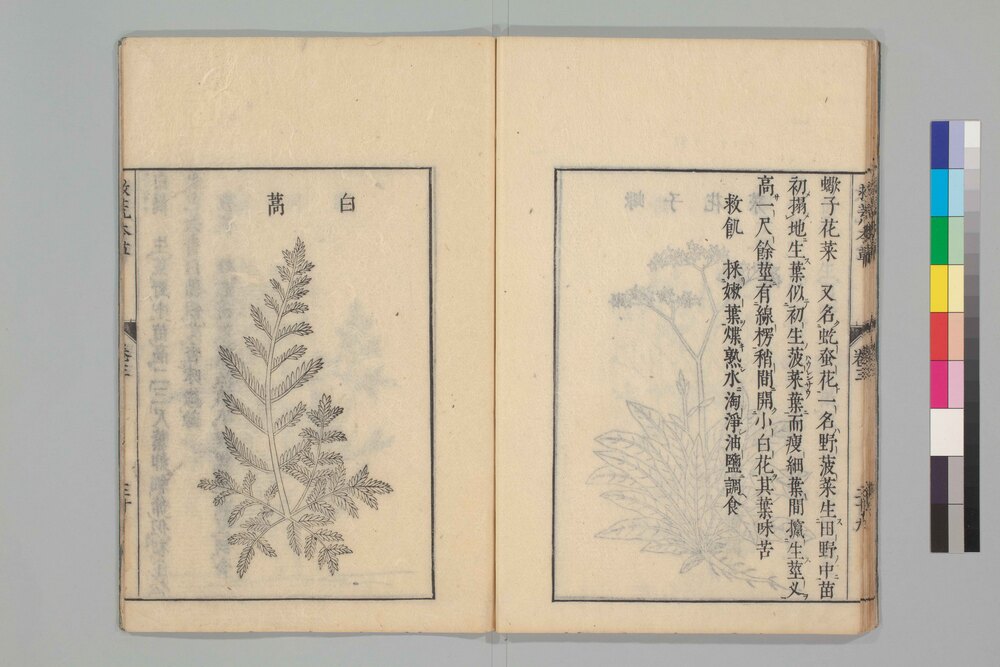 蠍子花菜 又名虼蚤花一名野菠菜生田野中苗
初搨地生葉似初生菠菜葉而瘦細葉間攛生莖叉
高一尺餘莖有線楞稍間開小白花其葉味苦
救飢 採嫩葉煠熟水淘淨油鹽調食
白蒿
救荒本草
卷三